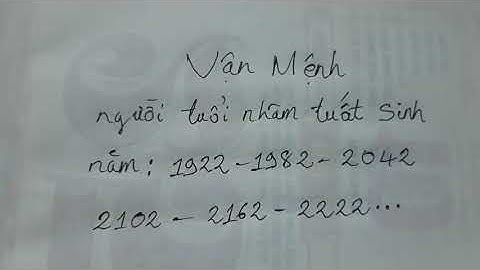 Vận Mệnh
người tuổi nhâm tuất Sinh
năm: 1922 - 1982 - 2042
2102 - 2162 - 2222...